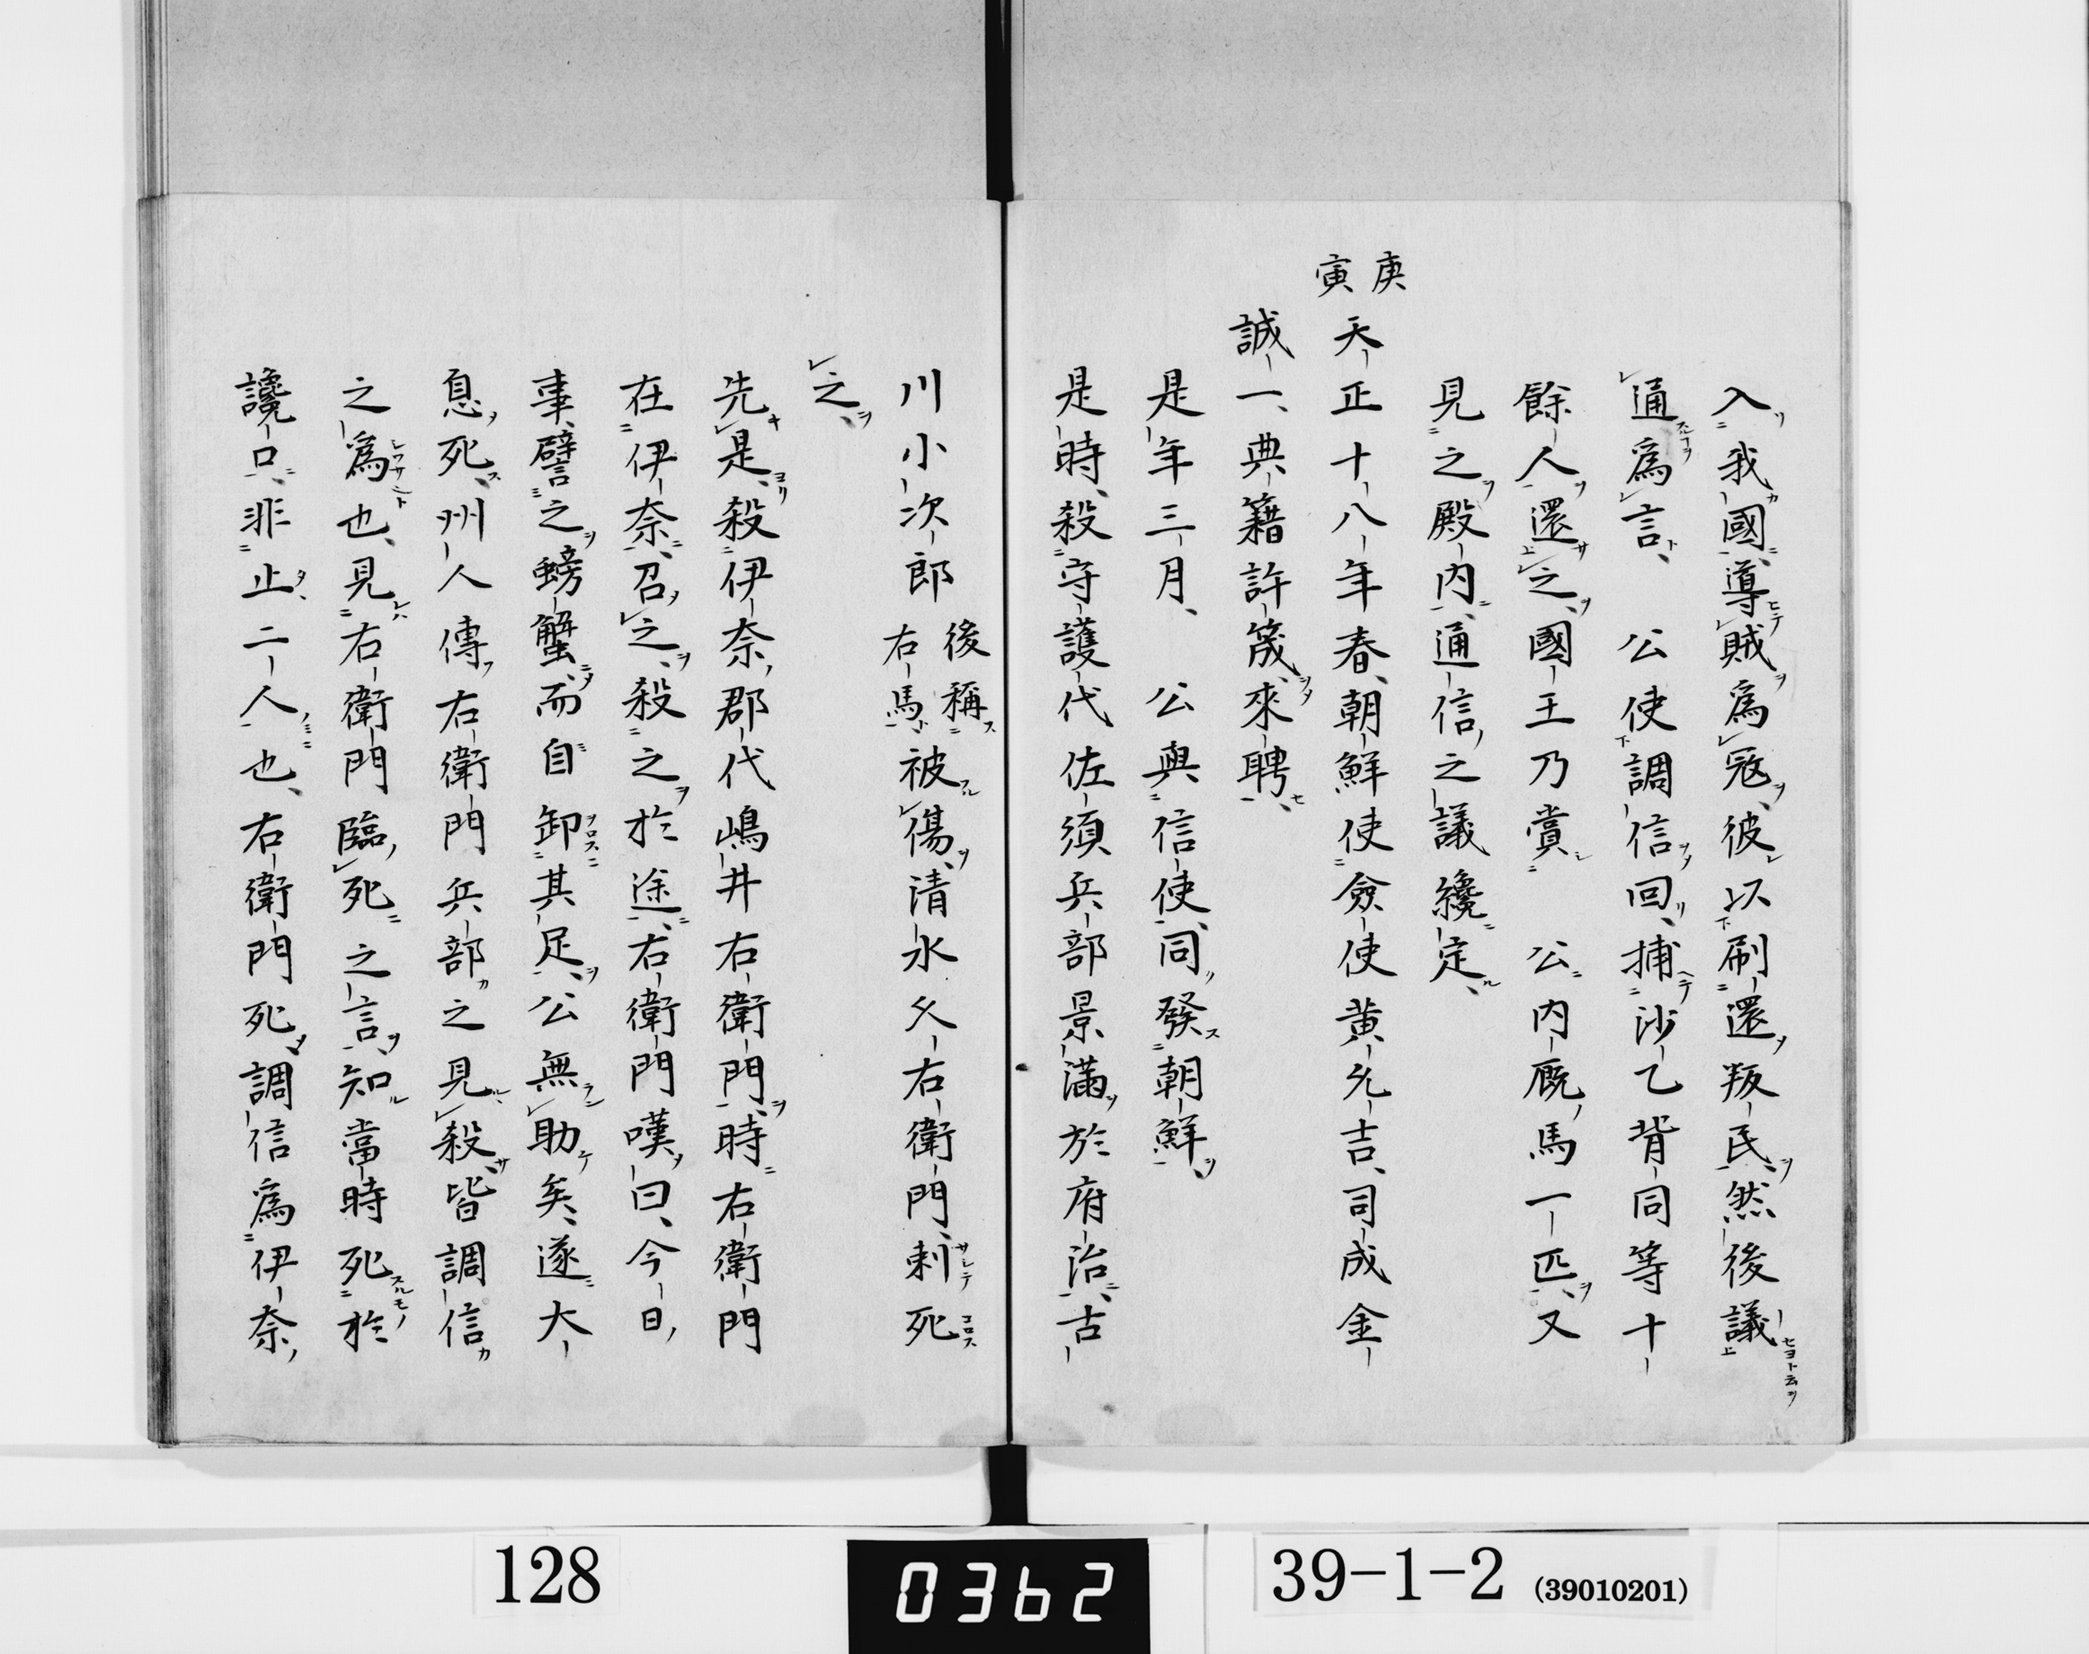 入我國導賊爲寇彼以刷還叛民然後議
通爲言　公使調信回捕沙乙背同等十
餘人還之國王乃賞　公内厩馬一匹又
見之殿内通信之議纔定
庚寅
天正十八年春朝鮮使僉使黄允吉司成金
誠一典籍許筬來聘
是年三月　公與信使同發朝鮮
是時殺守護代佐須兵部景滿於府治古
川小次郎後稱右馬被傷清水久右衛門刺死
之
先是殺伊奈郡代嶋井右衛門時右衛門
在伊奈召之殺之於途右衛門嘆曰今日
事譬之螃蟹而自卸其足公無助矣遂大
息死州人傳右衛門兵部之見殺皆調信
之爲也見右衛門臨死之言知當時死於
讒口非止二人也右衛門死調信爲伊奈
128
0362
39-1-2 (39010201)